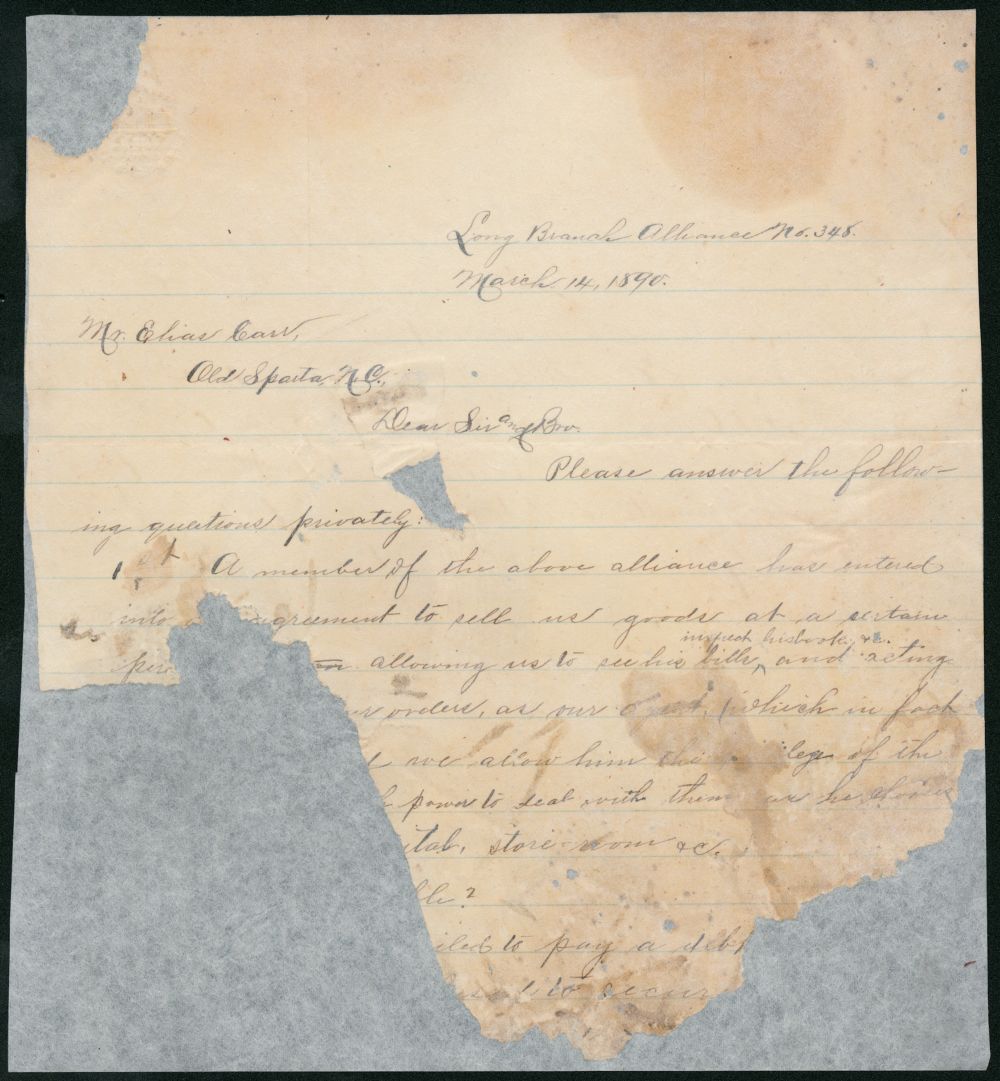 Long Branch Alliance No. 348.
March 14, 1890.
Mr. Elias Carr,
Old Sparta, N.C.,
Dear Sir and Bro.
Please answer the follow-
ing questions privately:
1st A member of the above alliance has entered
into agreement to sell us goods at a certain
inspect his books, &c.
allowing us to see his bills, and acting
orders, as our (which in fact
we allow him the of the
power to deal with them as he
store-room &c.
?
to pay a debt
to secur